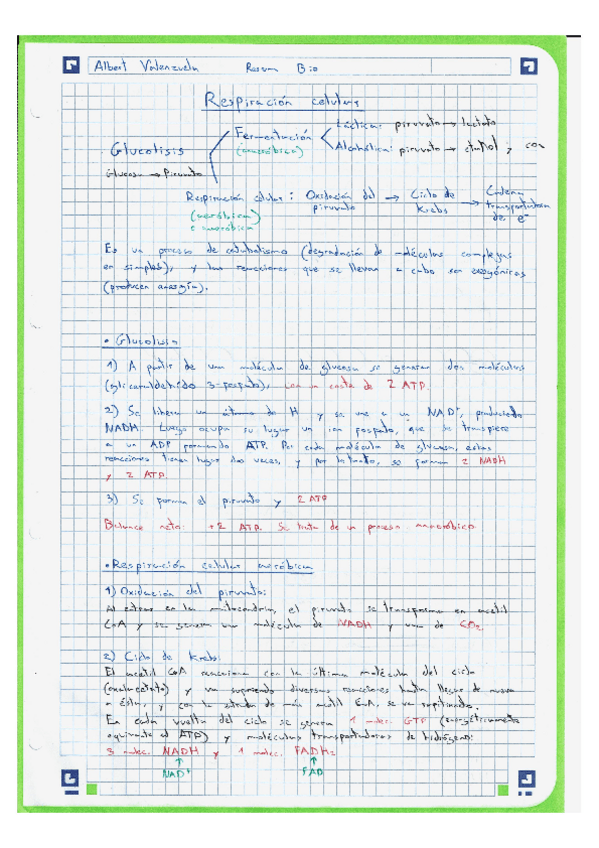 Albert Valenzuela Resum Bio
Respiración celular
Glucolisis
Glucosa → Piruvato
Fermentación
(anaeróbica)
Láctica: piruvato → lactato
Alcohólica: piruvato → etanol y CO2
Respiración celular: Oxidación del piruvato → Ciclo de Krebs → Cadena transportadora de e-
(aeróbica)
o anaeróbica
Es un proceso de catabolismo (degradación de moléculas complejas
en simples), y las reacciones que se llevan a cabo son exergónicas
(producen energía).
• Glucolisis
1) A partir de una molécula de glucosa se generan dos moléculas
(gliceraldehido 3-fosfato), con un coste de 2 ATP.
2) Se libera un átomo de H y se une a un NAD+, produciendo
NADH. Luego ocupa su lugar un ion fosfato, que se transfiere
a un ADP formando ATP. Por cada molécula de glucosa, estas
reacciones tienen lugar dos veces, y por lo tanto, se forman 2 NADH
y 2 ATP.
3) Se forma el piruvato y 2 ATP
Balance neto: +2 ATP. Se trata de un proceso anaeróbico
• Respiración celular aeróbica
1) Oxidación del piruvato:
Al entrar en la mitocondria, el piruvato se transforma en acetil
CoA y se genera una molécula de NADH y una de CO2
2) Ciclo de Krebs:
El acetil CoA reacciona con la última molécula del ciclo
(oxalacetato) y va sufriendo diversas reacciones hasta llegar de nuevo
a ésta, y con la entrada de más acetil CoA, se va repitiendo.
En cada vuelta del ciclo se genera 1 molec. GTP (energéticamente
equivalente al ATP) y moléculas transportadoras de hidrógeno:
3 molec. NADH y 1 molec. FADH2
↑ ↑
NAD+ FAD